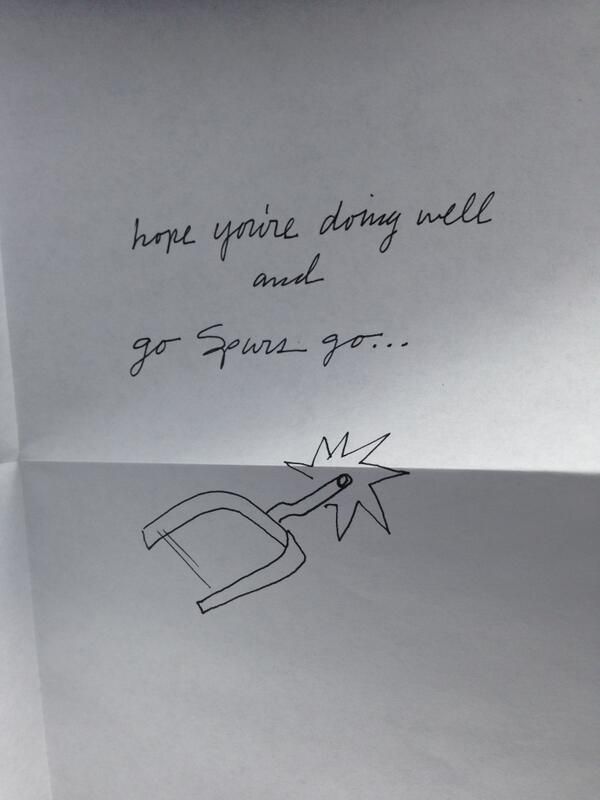 hope you're doing well
and
go Spurs go...